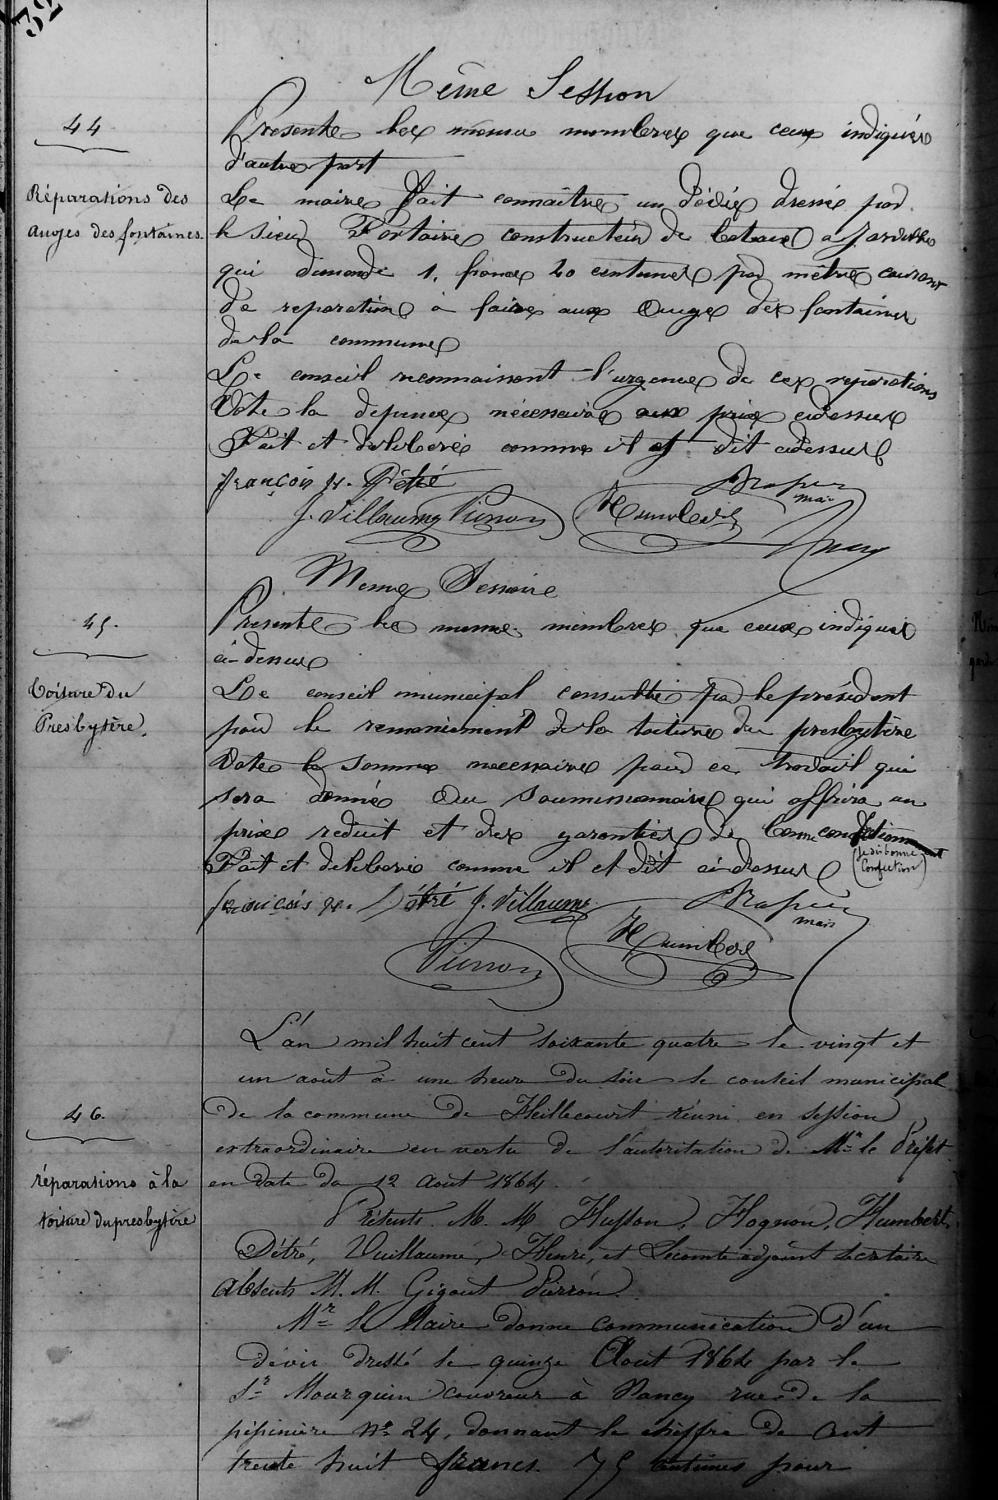 32
Même Session
44
Presents les mesme membres que ceux indiqués
d'autre part
Réparations des
auges des fontaines.
Le maire fait connaître un dévis dressé par
le sieur Fontaine constructeur de
qui demande 1, franc 20 centimes par mètre courant
de reparation à faire aux auges des fontaines
de la commune
Le conseil reconnaissant l'urgence de ces reparations
Vote la depense nécessaire aux prix cidessus
Fait et deliberé comme il est dit cidessus
françois x. Détré
maire
J. Villaume Pierron Humbert
Meme Session
45.
Presents les memes membres que ceux indiqués
ci-dessus
Toiture du
Presbytère.
Le conseil municipal consulté par le président
pour le remaniement de la toiture du presbytère
Vote la somme necessaire pour ce travail qui
sera donné au soumissionnaire qui offrira un
prix reduit et des garanties de bonne
(je dis bonne
Confection)
Fait et deliberé comme il est dit ci-dessus
françois x. Détré J. Villaume
maire
Humbert
Pierron
L'an mil huit cent soixante quatre le vingt et
un août à une heure du soir le conseil municipal
46.
de la commune de Heillecourt réuni en session
extraordinaire en vertu de l'autorisation de Mr. le Préfet
en date du 12 Août 1864.
réparations à la
toiture du presbytère
Présents M. M. Husson, Hognon, Humbert,
Détré, Vuillaume, Henri, et Lecomte adjoint secretaire
Absents M. M. Gigout Pierron.
Mr. le Maire donne communication d'un
dévis dressé le quinze Août 1864 par le
Sr. Mourquin couvreur à Nancy rue de la
pépinière No. 24, donnant le chiffre de Cent
trente huit francs 75 centimes pour